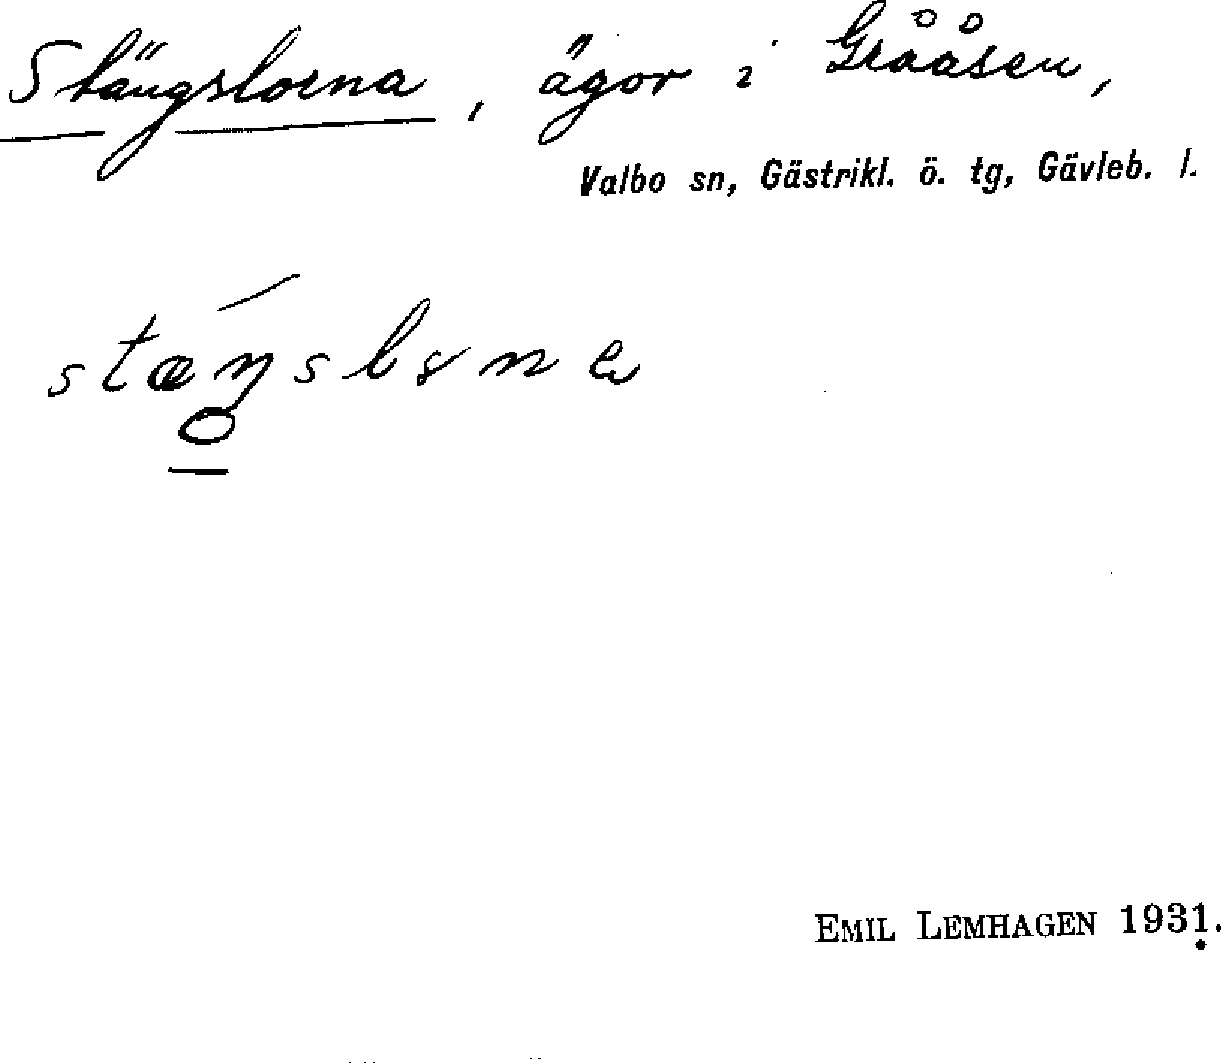 Stängslorna, ägor i Grååsen,
Valbo sn, Gästrikl. ö. tg, Gävleb. l.
EMIL LEMHAGEN 1931.